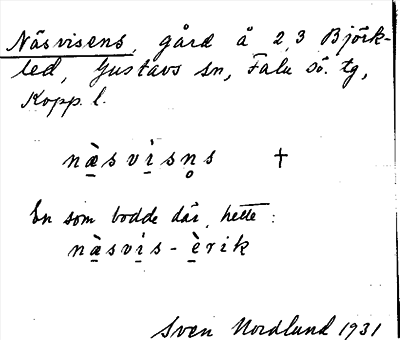 Näsvisens, gård å 2,3 Björk-
led, Gustavs sn, Falu sö. tg,
Kopp. l.
næ̱̀svì̱sn̥s †
En som bodde där, hette:
næ̱̀svì̱s-è̱rik
Sven Nordlund 1931